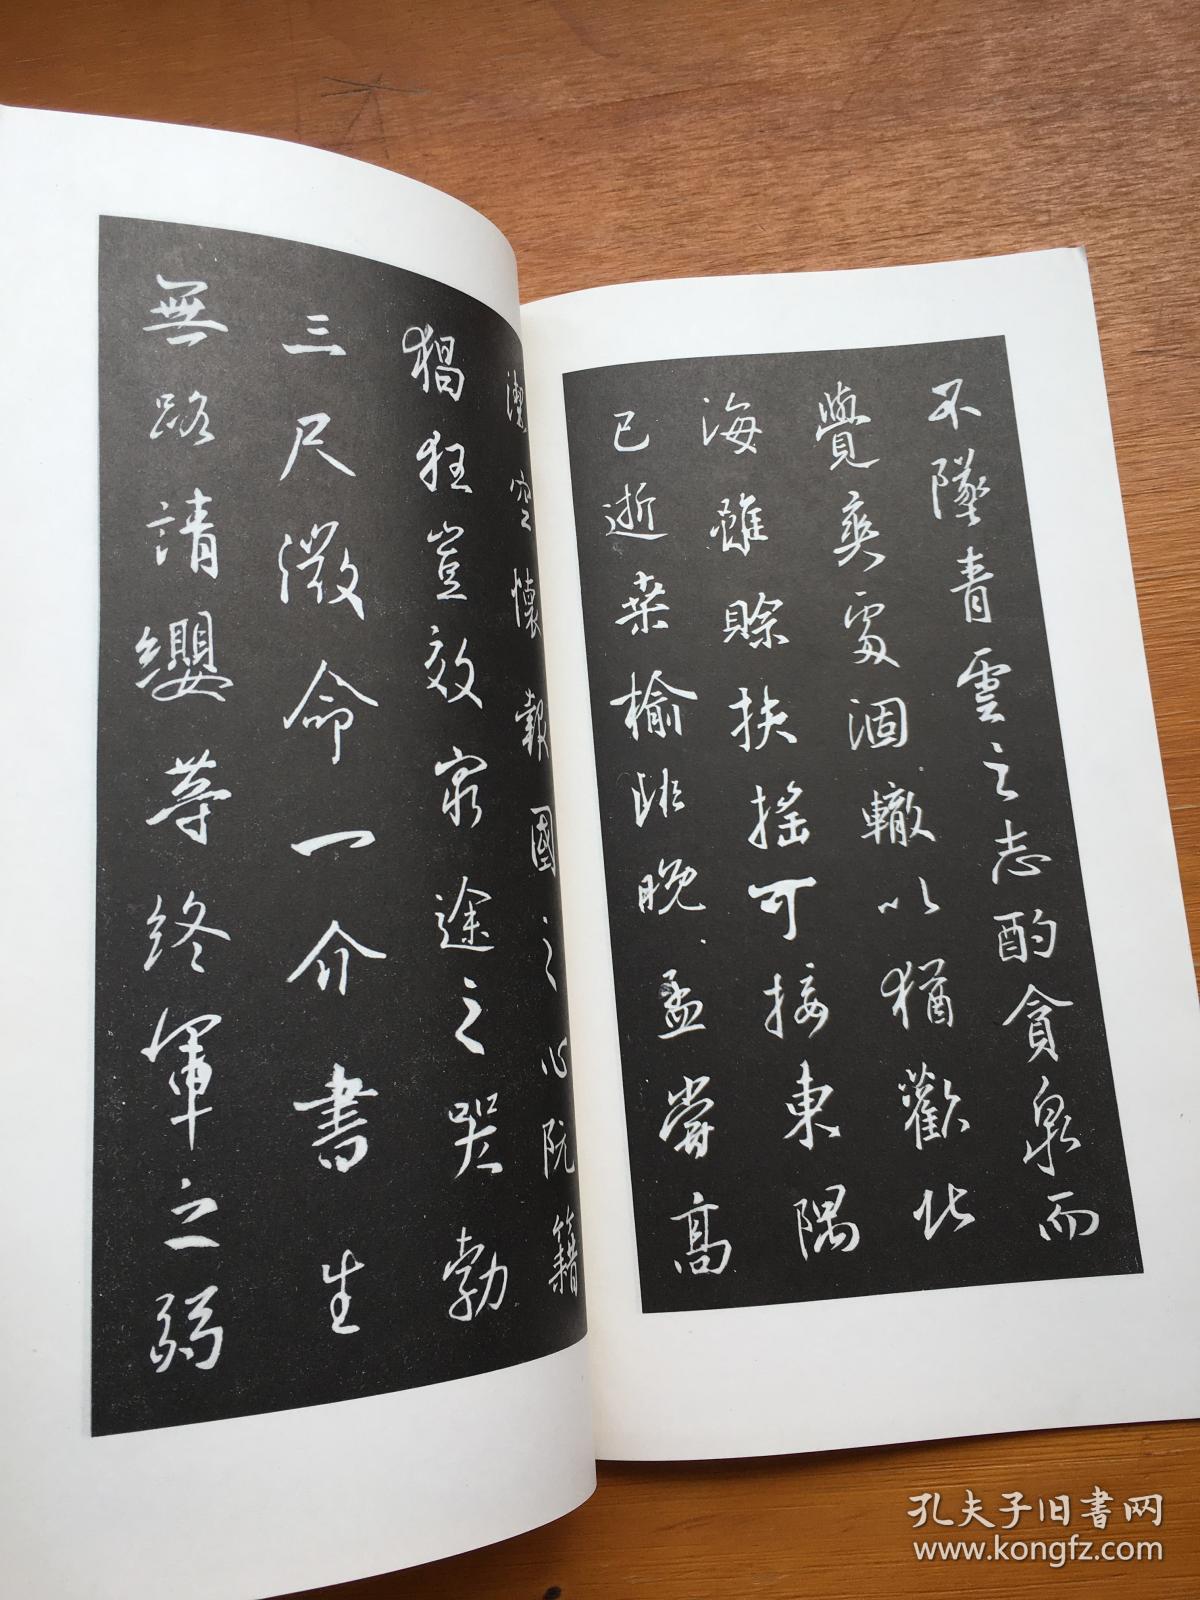 不墜青雲之志酌貪泉而
覺爽處涸轍以猶歡北
海雖賒扶搖可接東隅
已逝桑榆非晚孟嘗高
潔空懷報國之心阮籍
猖狂豈效窮途之哭勃
三尺微命一介書生
無路請纓等終軍之弱
孔夫子旧书网
www.kongfz.com